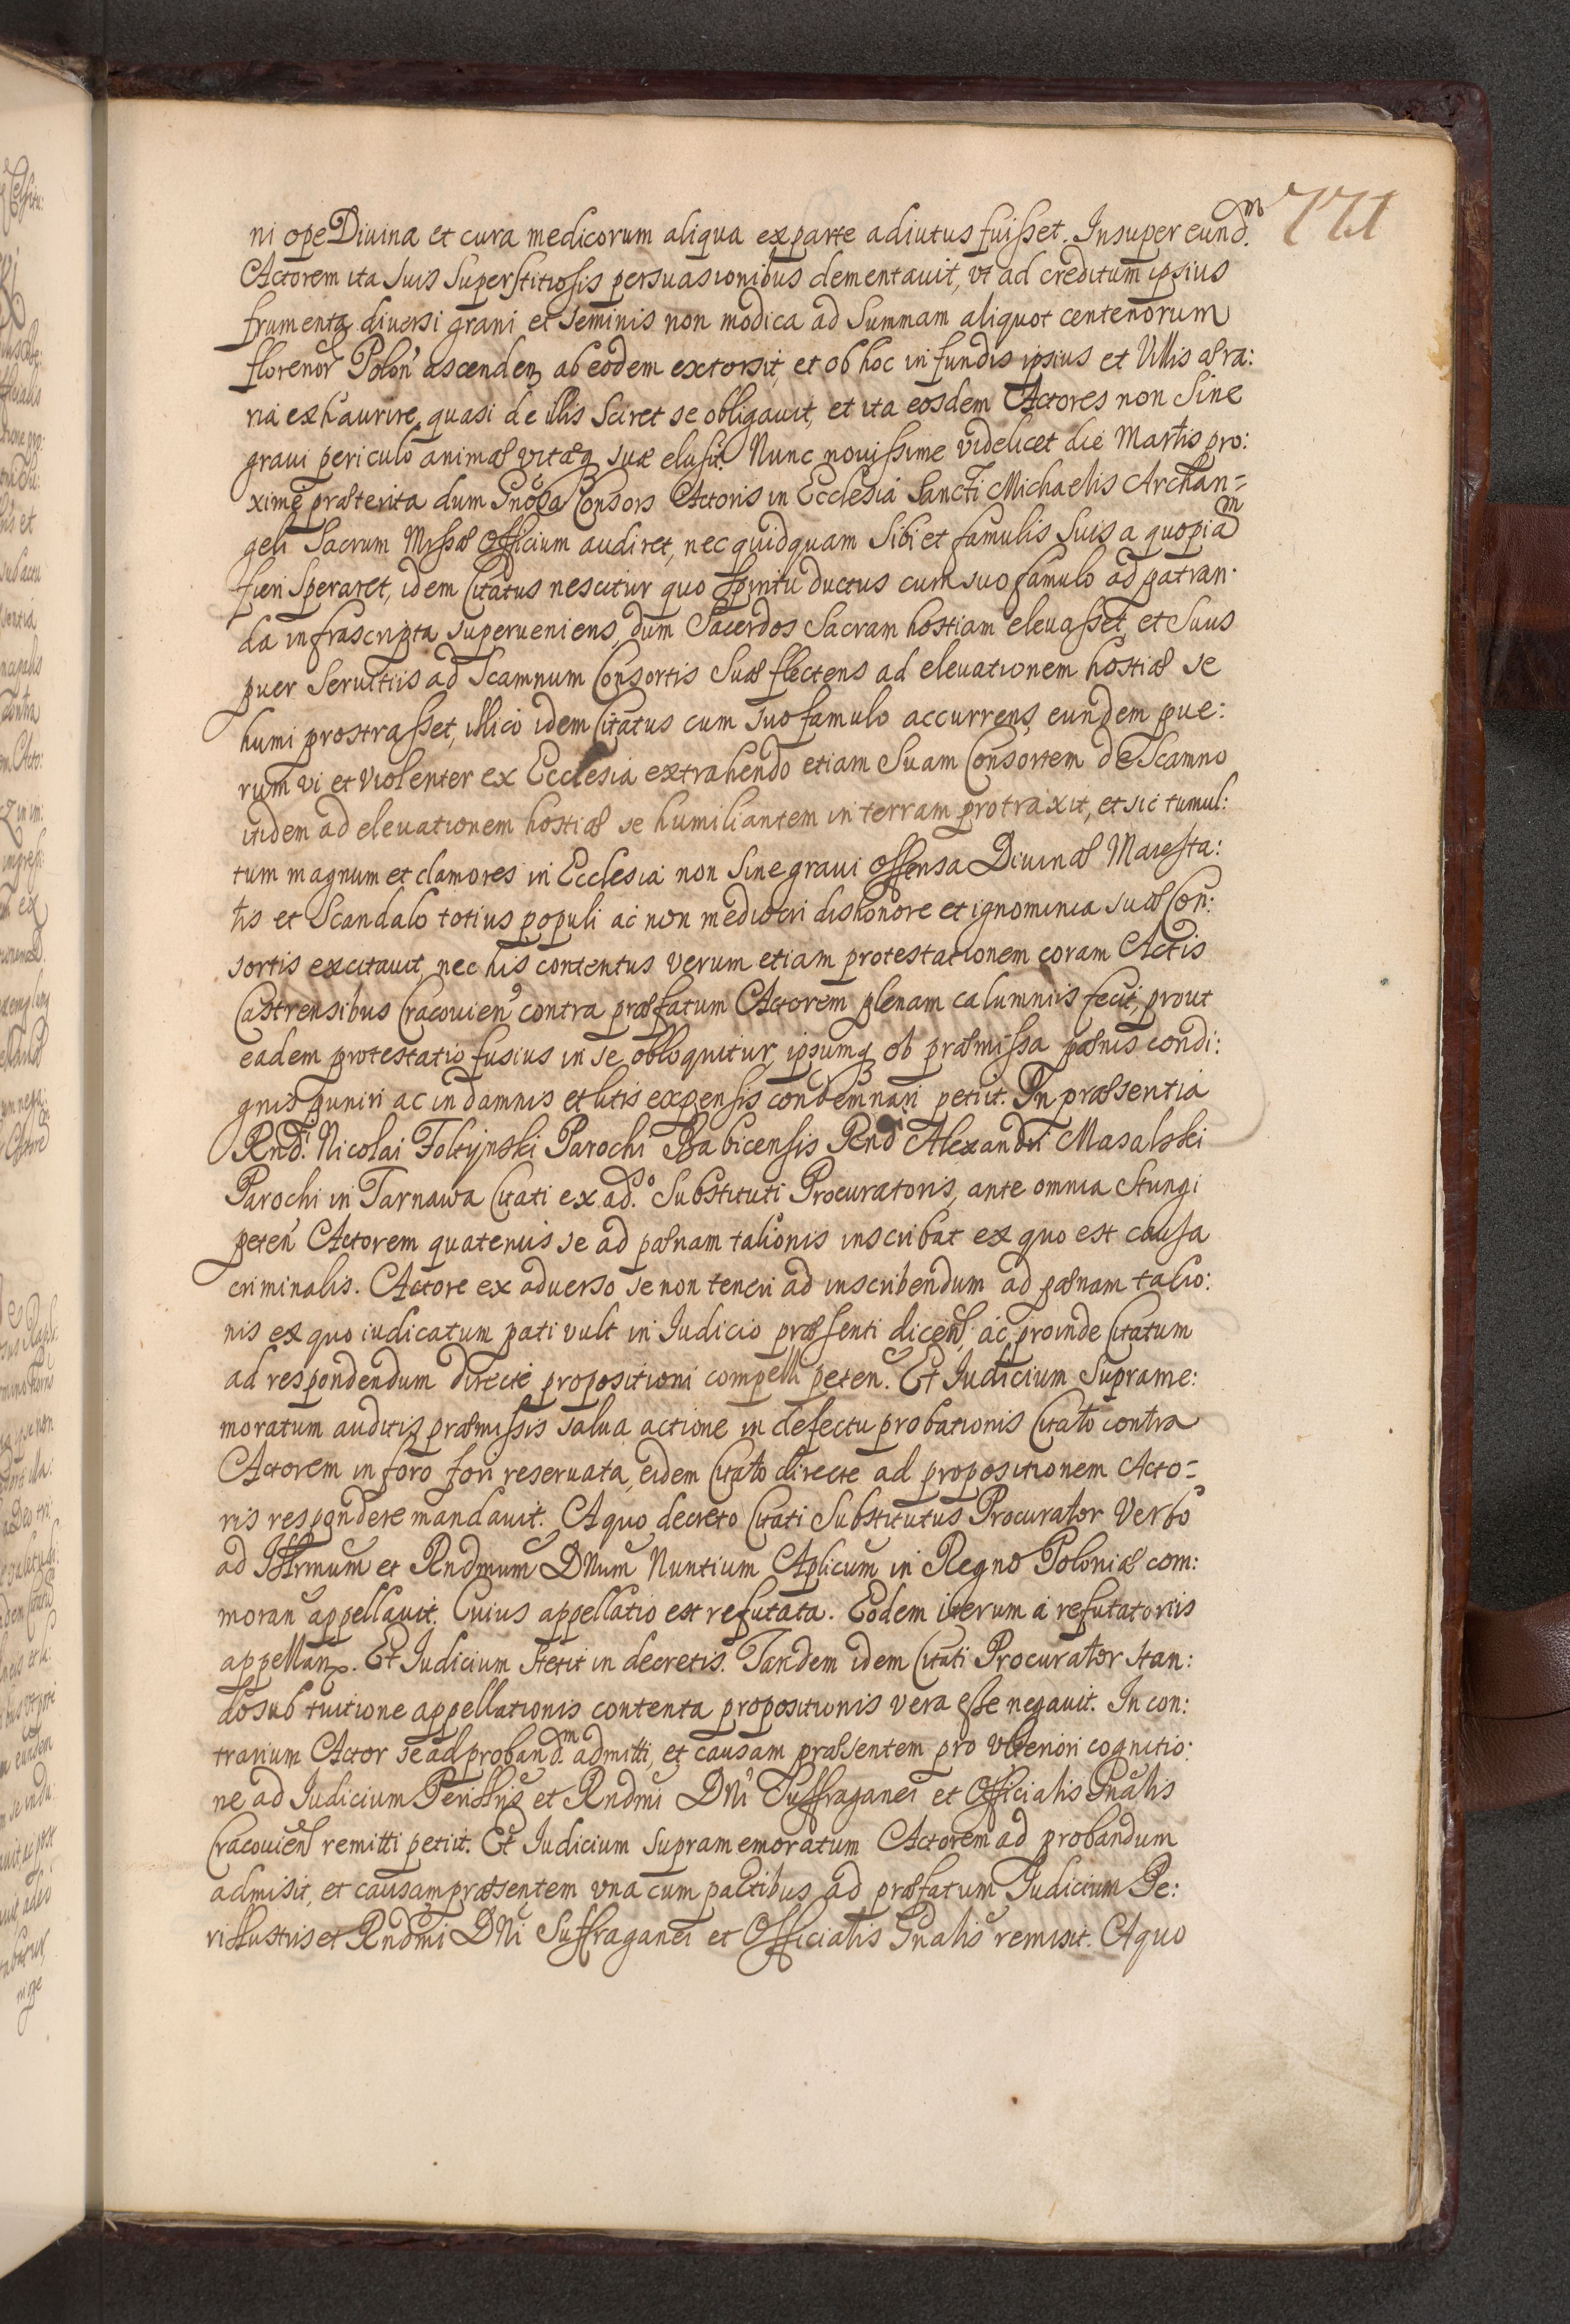 771
ni ope Diuina et cura medicorum aliqua ex parte adiutus fuisset. Insuper eund.m
Actorem ita suis superstitiosis persuasionibus dementauit, vt ad creditum ipsius
frumenta diuersi grani et seminis non modica ad summam aliquot centenorum
florenor Polon ascenden ab eodem extorsit, et ob hoc in fundis ipsius et Villis æra:
ria exhaurire, quasi de illis sciret se obligauit, et ita eosdem Actores non sine
graui periculo animæ vitæq suæ elusit. Nunc nouissime videlicet die Martis pro:
xime præterita dum Gnosa Consors Actoris in Ecclesia Sancti Michaelis Archan=
geli Sacrum Missæ Officium audiret, nec quidquam sibi et famulis suis a quopiam
fieri speraret, idem Citatus nescitur quo spiritu ductus cum suo famulo ad patran:
da infrascripta superueniens, dum Sacerdos Sacram hostiam eleuasset, et suus
puer seruitiis ad scamnum Consortis suæ flectens ad eleuationem hostiæ se
humi prostrasset, illico idem Citatus cum suo famulo accurrens, eundem pue:
rum vi et violenter ex Ecclesia extrahendo etiam suam Consortem de scamno
itidem ad eleuationem hostiæ se humiliantem in terram protraxit, et sic tumul:
tum magnum et clamores in Ecclesia non sine graui offensa Diuinæ Maiesta:
tis et scandalo totius populi ac non mediocri dishonore et ignominia suæ Con:
sortis excitauit, nec his contentus verum etiam protestationem coram Actis
Castrensibus Cracouien contra præfatum Actorem plenam calumniis fecit, prout
eadem protestatio fusius in se obloquitur, ipsumq ob præmissa pænis condi:
gnis puniri ac in damnis et litis expensis condemnari petiit. In præsentia
Rnd. Nicolai Folcynski Parochi Babicensis Rnd Alexandri Masalski
Parochi in Tarnawa Citati ex ad.o Substituti Procuratoris, ante omnia stungi
peten Actorem quatenus se ad pænam talionis inscribat ex quo est causa
criminalis. Actore ex aduerso se non teneri ad inscribendum ad pænam talio:
nis ex quo iudicatum pati vult in Iudicio præsenti dicen, ac proinde Citatum
ad respondendum directe propositioni compelli peten. Et Iudicium suprame:
moratum auditis præmissis salua actione in defectu probationis Citato contra
Actorem in foro fori reseruata, eidem Citato directe ad propositionem Acto=
ris respondere mandauit. A quo decreto Citati Substitutus Procurator Verbo
ad Illrmum et Rndmum Dnum Nuntium Aplicum in Regno Poloniæ com:
moran appellauit. Cuius appellatio est refutata. Eodem iterum a refutatoriis
appellan. Et Iudicium stetit in decretis. Tandem idem Citati Procurator stan:
do sub tuitione appellationis contenta propositionis vera esse negauit. In con:
trarium Actor se ad proband.m admitti, et causam præsentem pro vlteriori cognitio:
ne ad Iudicium Perillris et Rndmi Dni Suffraganei et Officialis Gnalis
Cracouien remitti petiit. Et Iudicium supramemoratum Actorem ad probandum
admisit, et causam præsentem vna cum partibus ad præfatum Iudicium Pe:
rillustris et Rndmi Dni Suffraganei et Officialis Gnalis remisit. A quo